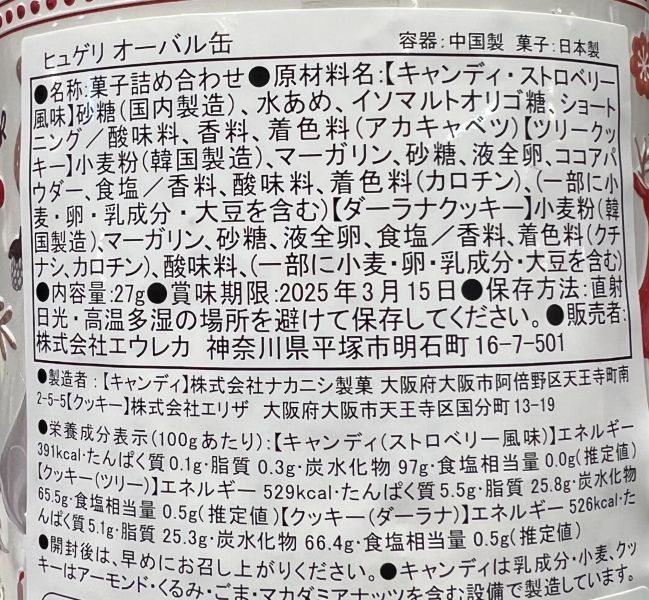 ヒュゲリ オーバル缶 容器:中国製 菓子:日本製
●名称:菓子詰め合わせ●原材料名:【キャンディ・ストロベリー
風味】砂糖(国内製造)、水あめ、イソマルトオリゴ糖、ショート
ニング/酸味料、香料、着色料(アカキャベツ)【ツリークッ
キー】小麦粉(韓国製造)、マーガリン、砂糖、液全卵、ココアパ
ウダー、食塩/香料、酸味料、着色料(カロチン)、(一部に小
麦・卵・乳成分・大豆を含む)【ダーラナクッキー】小麦粉(韓
国製造)、マーガリン、砂糖、液全卵、食塩/香料、着色料(クチ
ナシ、カロチン)、酸味料、(一部に小麦・卵・乳成分・大豆を含む)
●内容量:27g●賞味期限:2025年3月15日●保存方法:直射
日光・高温多湿の場所を避けて保存してください。●販売者:
株式会社エウレカ 神奈川県平塚市明石町16-7-501
●製造者:【キャンディ】株式会社ナカニシ製菓 大阪府大阪市阿倍野区天王寺町南
2-5-5【クッキー】株式会社エリザ 大阪府大阪市天王寺区国分町13-19
●栄養成分表示(100gあたり):【キャンディ(ストロベリー風味)】エネルギー
391kcal・たんぱく質0.1g・脂質0.3g・炭水化物 97g・食塩相当量0.0g(推定値)
【クッキー(ツリー)】エネルギー 529kcal・たんぱく質5.5g・脂質 25.8g・炭水化物
65.5g・食塩相当量0.5g(推定値)【クッキー(ダーラナ)】エネルギー 526kcal・た
んぱく質5.1g・脂質 25.3g・炭水化物 66.4g・食塩相当量0.5g(推定値)
●開封後は、早めにお召し上がりください。●キャンディは乳成分・小麦、クッ
キーはアーモンド・くるみ・ごま・マカダミアナッツを含む設備で製造しています。